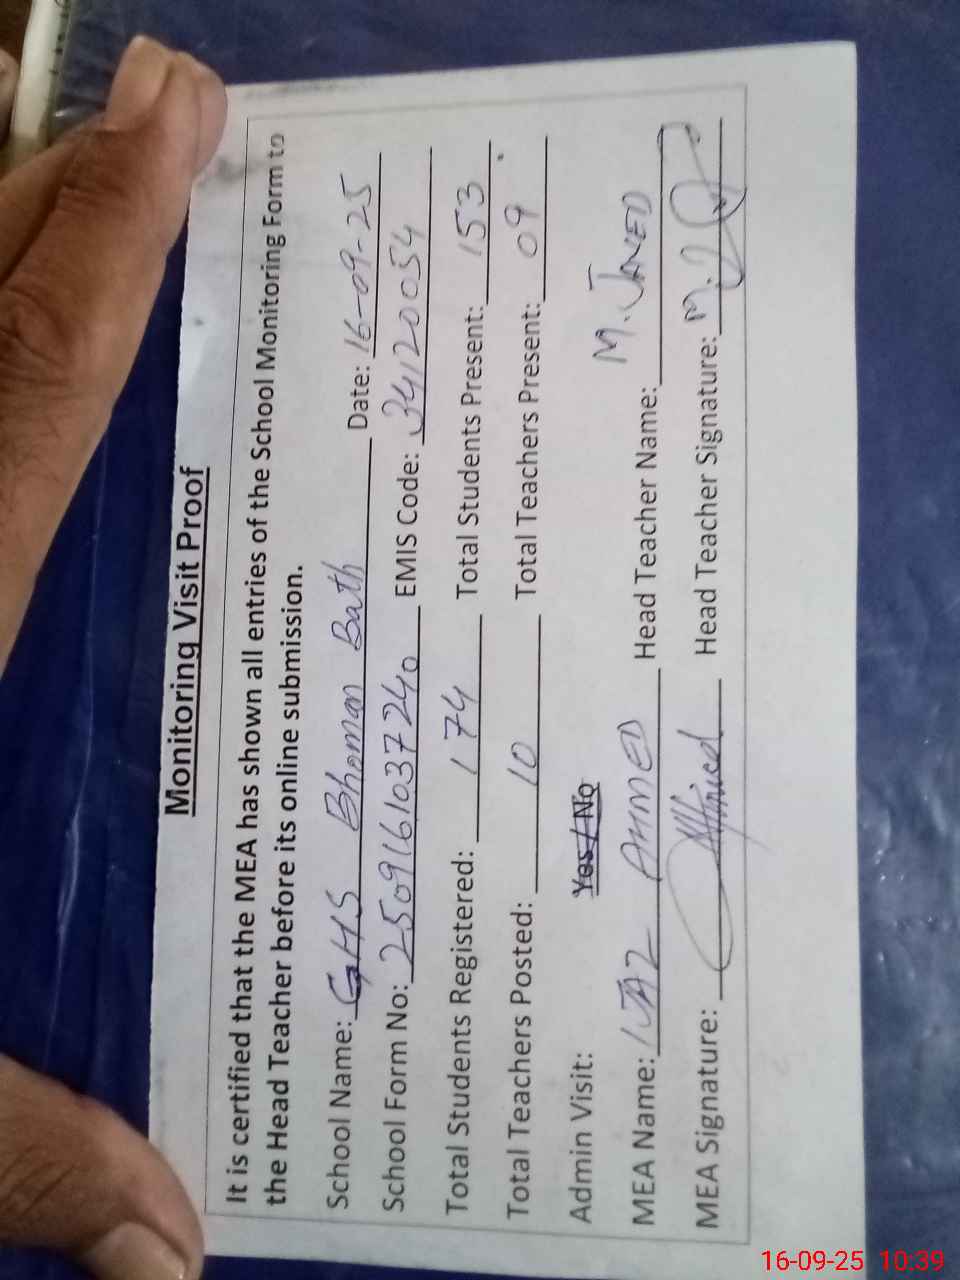 Monitoring Visit Proof
It is certified that the MEA has shown all entries of the School Monitoring Form to
the Head Teacher before its online submission.
School Name: GHS Bhoman Bath Date: 16-09-25
School Form No: 2509161037240 EMIS Code: 34120054
Total Students Registered: 174 Total Students Present: 153
Total Teachers Posted: 10 Total Teachers Present: 09
Admin Visit: Yes / No
MEA Name: IJAZ AHMED Head Teacher Name: M. JAVED
MEA Signature: Head Teacher Signature:
16-09-25 10:39